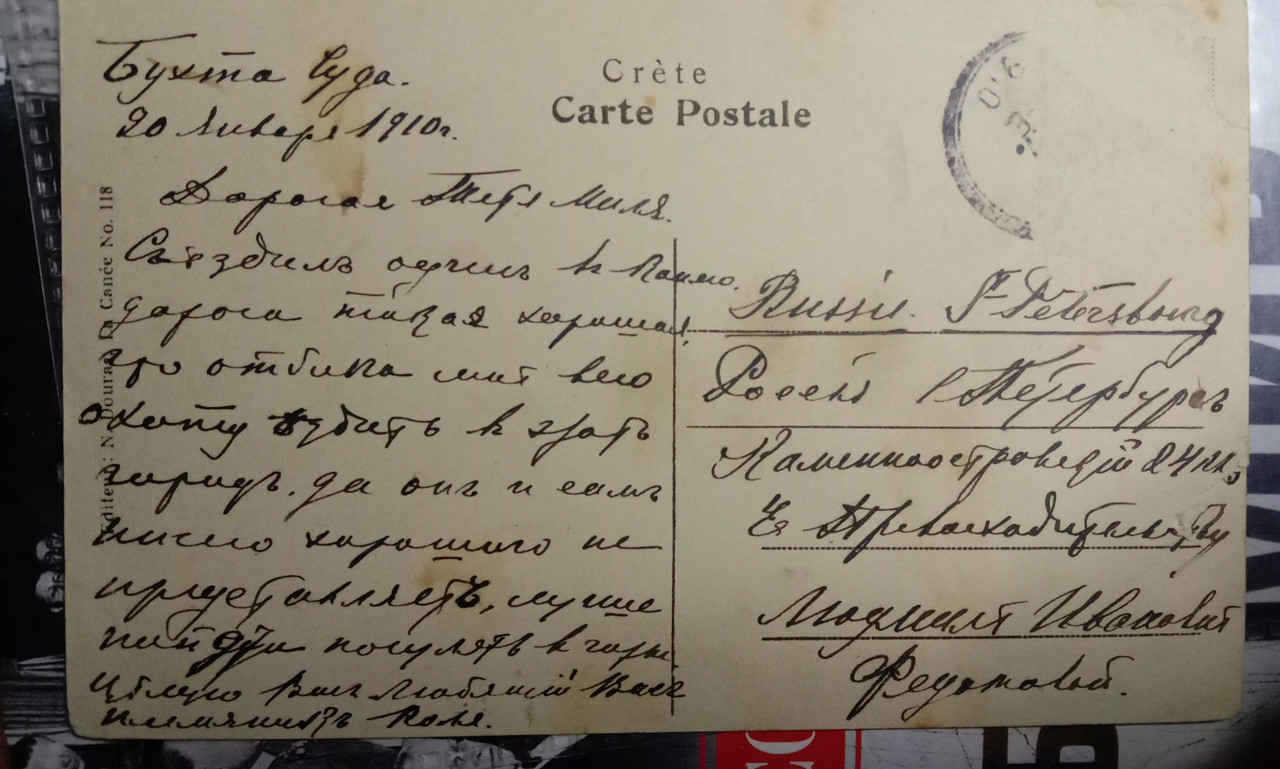 Crète
Carte Postale
Бухта Суда.
20 Января 1910г.
Дорогая Тетя Миля.
Съездилъ одинъ въ Канею.
дорога такая хорошая,
что отбила мнѣ всю
охоту ѣздить въ этотъ
городъ. да онъ и самъ
ничего хорошаго не
представляетъ, лучше
пойду погулять въ горы
Цѣлую Васъ Любящій Васъ
племянникъ Коля.
Editeur: N. Douras, La Canée No. 118
Russie. St Petersbourg
Россія С Петербургъ
Каменноостровскій 24 кв,
Ея Превосходительству
Людмилѣ Ивановнѣ
Федотовой.